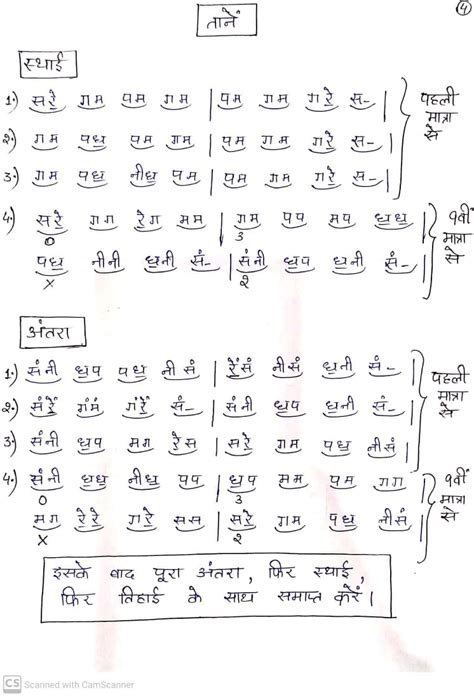 ④
तानें
स्थाई
1.) सरे॒ गम पम गम | पम गम गरे॒ स-
2.) गम पध॒ पम गम | पम गम गरे॒ स-
3.) गम पध॒ नीध॒ पम | पम गम गरे॒ स-
पहली
मात्रा
से
4.) सरे॒ गग रे॒ग मम | गम पप मप ध॒ध॒ |
0 3
पध॒ नीनी ध॒नी सं- | संनी ध॒प ध॒नी सं- |
X 2
9वीं
मात्रा
से
अंतरा
1.) संनी ध॒प पध॒ नीसं | रे॒ंसं नीसं ध॒नी सं-
2.) संरे॒ं गंमं गंरे॒ं सं- | संनी ध॒प ध॒नी सं-
3.) संनी ध॒प मग रे॒स | सरे॒ गम पध॒ नीसं
पहली
मात्रा
से
4.) संनी ध॒ध॒ नीध॒ पप | ध॒प मम पम गग
0 3
मग रे॒रे॒ गरे॒ सस | सरे॒ गम पध॒ नीसं
X 2
9वीं
मात्रा
से
इसके बाद पूरा अंतरा, फिर स्थाई,
फिर तिहाई के साथ समाप्त करें।
CS Scanned with CamScanner